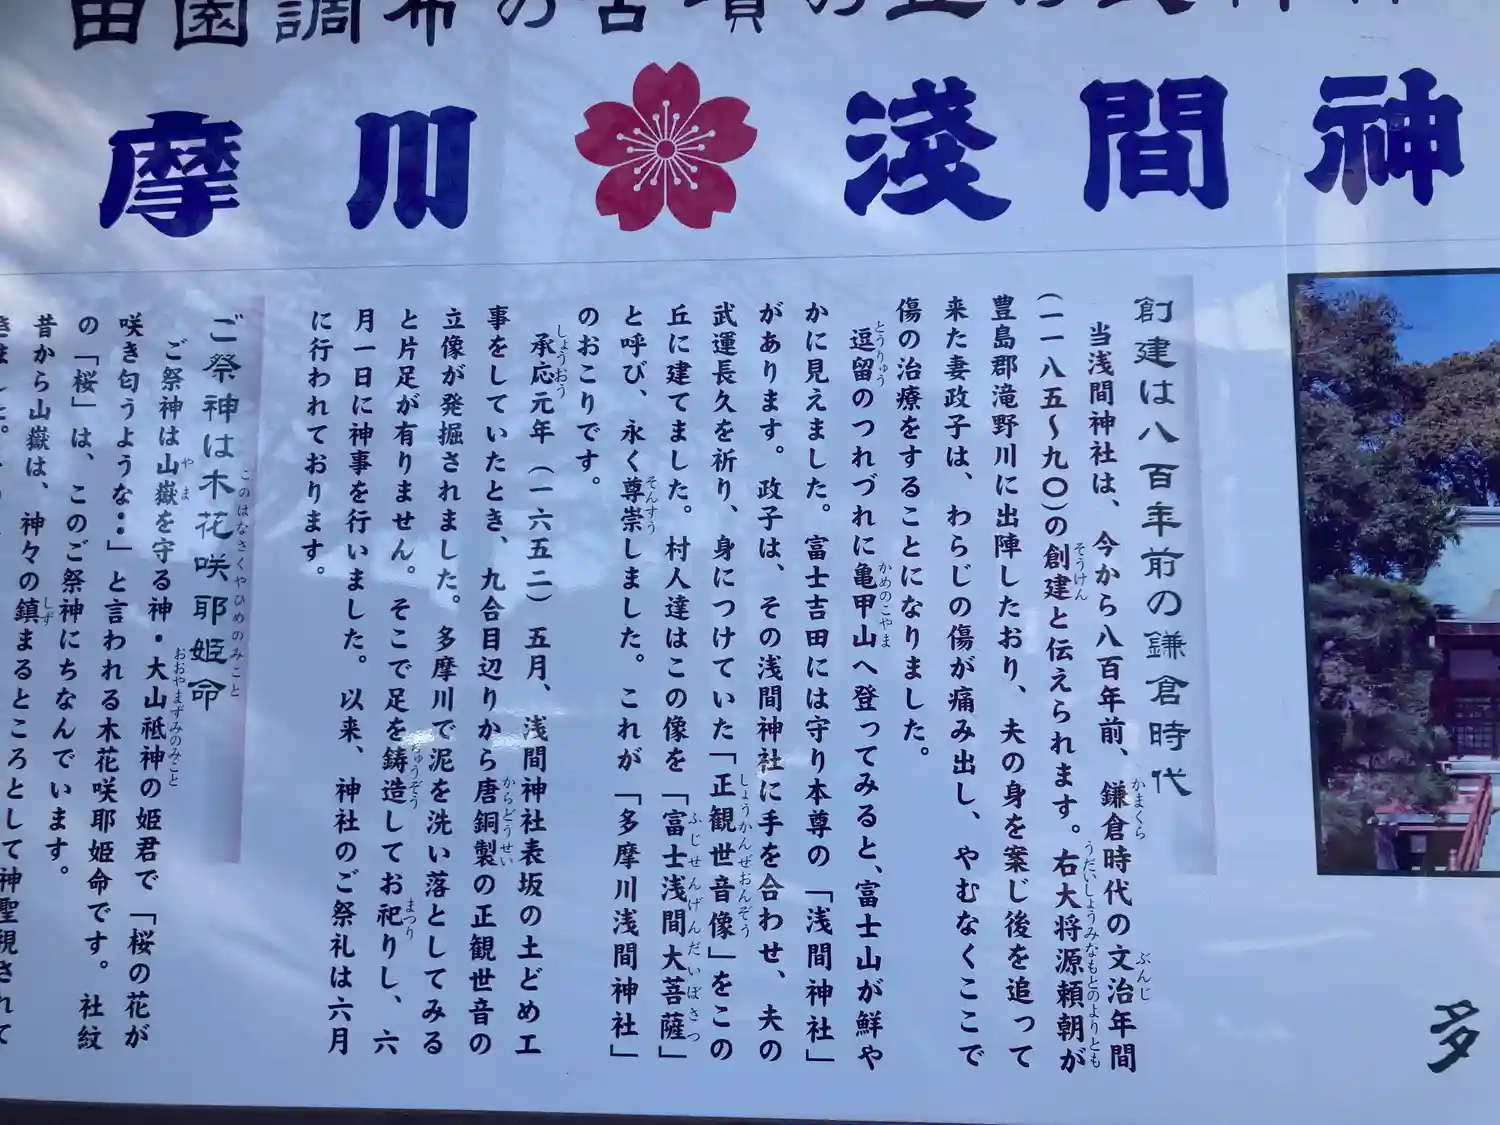 田園調布の古墳の上の
摩川 淺間神
創建は八百年前の鎌倉時代
当浅間神社は、今から八百年前、鎌倉時代の文治年間
(一一八五〜九〇)の創建と伝えられます。右大将源頼朝が
豊島郡滝野川に出陣したおり、夫の身を案じ後を追って
来た妻政子は、わらじの傷が痛み出し、やむなくここで
傷の治療をすることになりました。
逗留のつれづれに亀甲山へ登ってみると、富士山が鮮や
かに見えました。富士吉田には守り本尊の「浅間神社」
があります。政子は、その浅間神社に手を合わせ、夫の
武運長久を祈り、身につけていた「正観世音像」をこの
丘に建てました。村人達はこの像を「富士浅間大菩薩」
と呼び、永く尊崇しました。これが「多摩川浅間神社」
のおこりです。
承応元年(一六五二)五月、浅間神社表坂の土どめ工
事をしていたとき、九合目辺りから唐銅製の正観世音の
立像が発掘されました。多摩川で泥を洗い落としてみる
と片足が有りません。そこで足を鋳造してお祀りし、六
月一日に神事を行いました。以来、神社のご祭礼は六月
に行われております。
ご祭神は木花咲耶姫命
ご祭神は山嶽を守る神・大山祇神の姫君で「桜の花が
咲き匂うような‥」と言われる木花咲耶姫命です。社紋
の「桜」は、このご祭神にちなんでいます。
昔から山嶽は、神々の鎮まるところとして神聖視されて
きました。
多